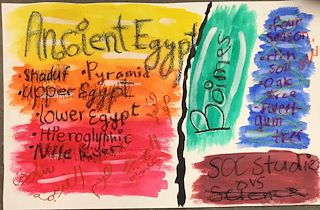 Ancient Egypt
• Shaduf • Pyramid
• Upper Egypt
• Lower Egypt
• Hieroglyphic
• Nile River
Baimes
• four
season
• rich
soil
• oak
tree
• sweet
gum
tree
SOC Studies
vs
Science